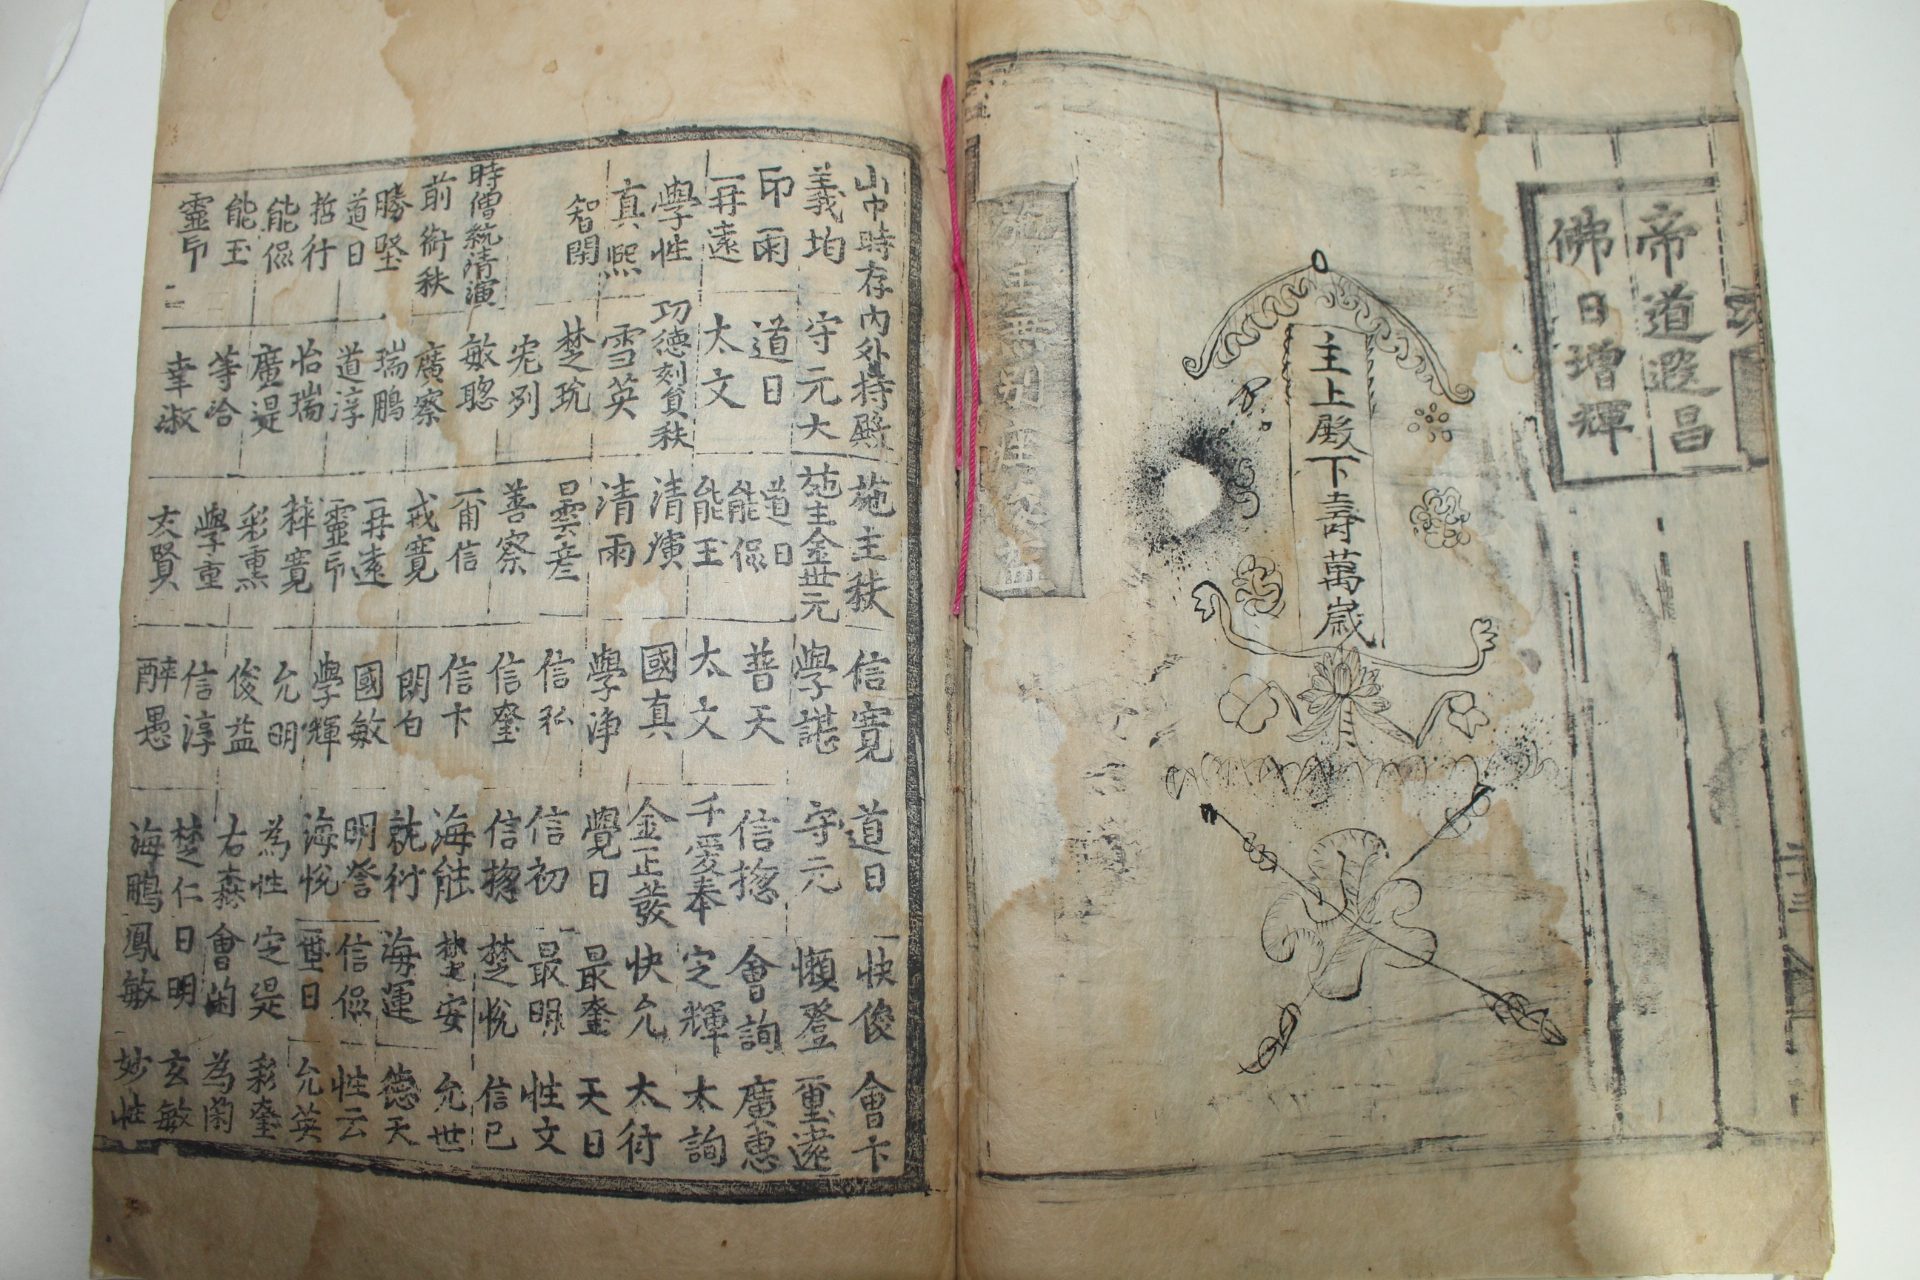 帝道遐昌
佛日增輝
主上殿下壽萬歲
施主無別座次益
山中時存內外持殿
施主秩
信寬
道日
快俊
會卞
義均
守元大
施主金世元
學諶
守元
懶登
重遠
印雨
道日
道日
能侃
普天
信摠
會詢
廣惠
一舟遠
太文
能玉
太文
千愛奉
定輝
太詢
學性
功德刻負秩
清演
國真
金正發
快允
太衍
真熙
雪英
清雨
學淨
覺日
最奎
天日
智閑
楚玧
曇彦
信私
信初
最明
性文
宪列
善察
信奎
信摠
楚悅
信已
時僧統清演
敏聰
一甫信
信卞
海能
楚安
允世
前銜秩
廣察
戒寬
朗白
就衍
海運
德天
勝堅
瑞鵬
一舟遠
國敏
明誉
信侃
性云
道日
道淳
靈印
學輝
海悅
一璽日
允英
哲行
怡瑞
釋寬
允明
為性
定湜
彩奎
能侃
廣湜
彩熏
俊益
右森
會菌
為菌
能玉
等洽
學重
信淳
楚仁
日明
玄敏
靈印
幸淑
太賢
醉愚
海鵬
鳳敏
妙性